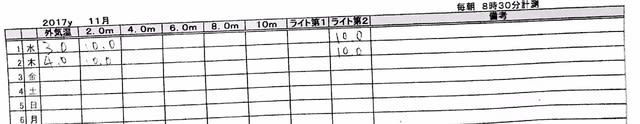 2017y 11月 毎朝 8時30分計測
外気温 2.0m 4.0m 6.0m 8.0m 10m ライト第1 ライト第2 備考
1 水 3.0 10.0 10.0
2 木 4.0 10.0 10.0
3 金
4 土
5 日
6 月